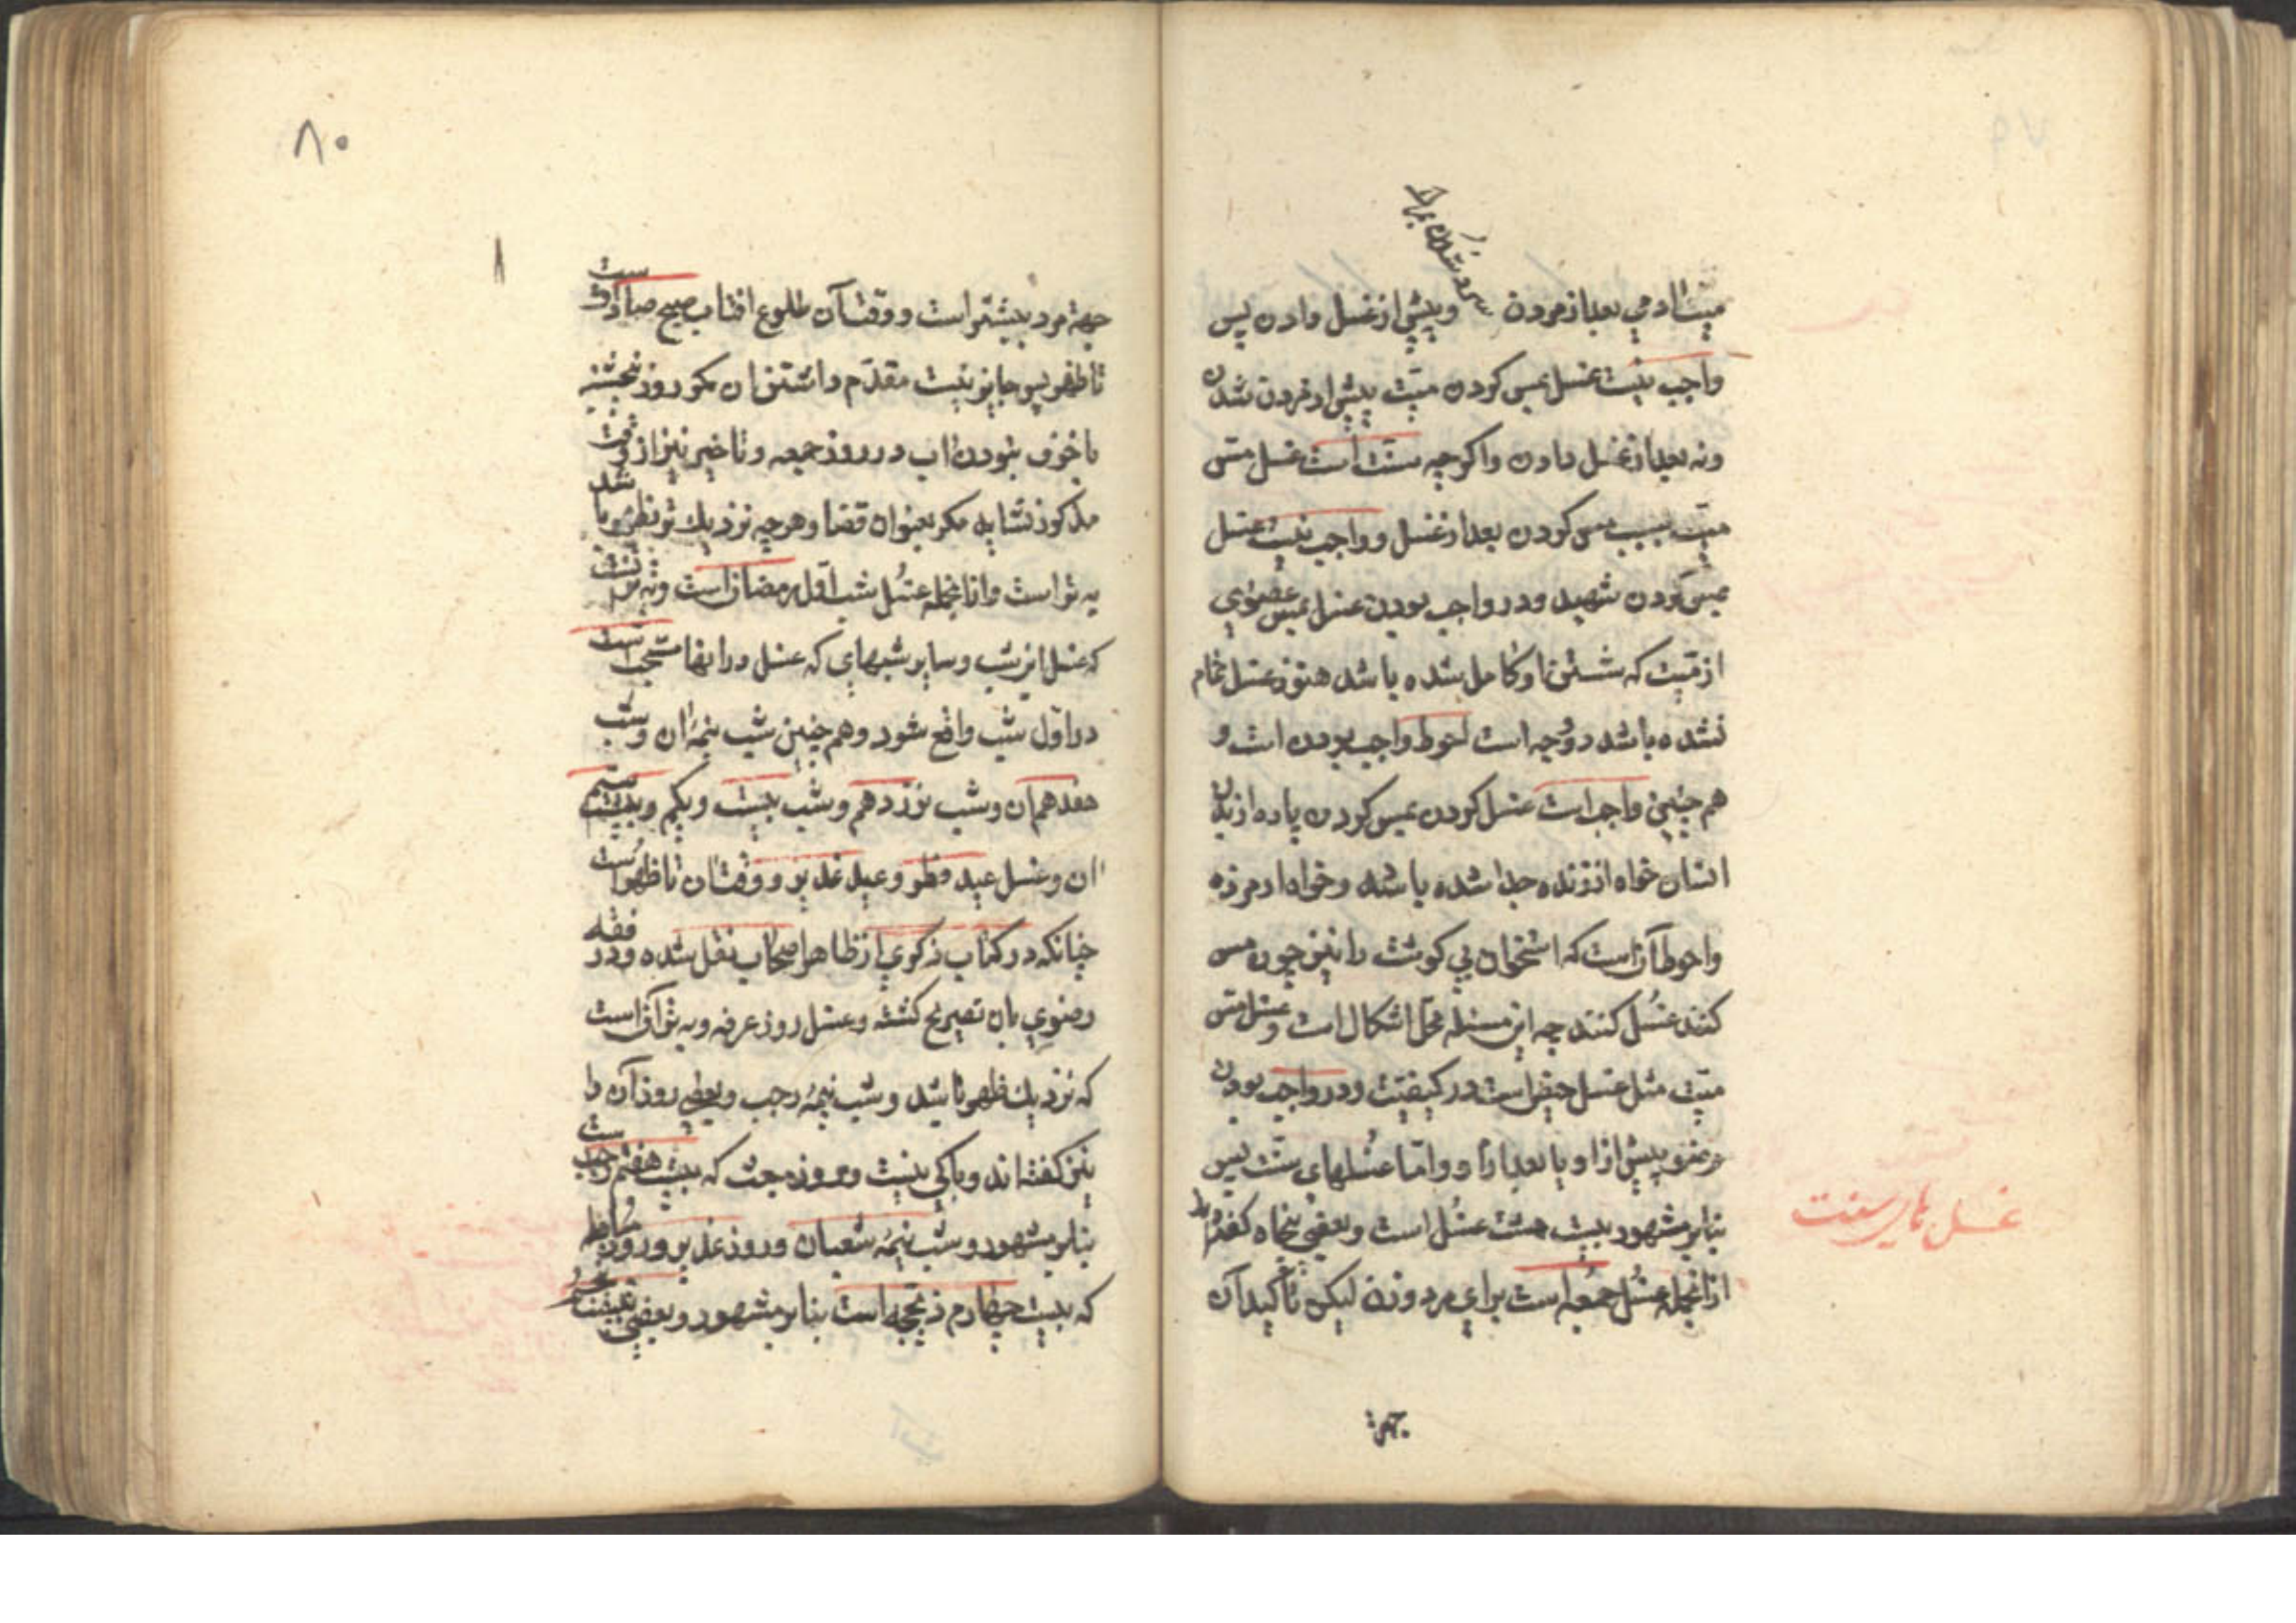 سرد شدن بدن
میت آدمی بعد از مردن و پیش از غسل دادن پس
واجب نیست غسل بمس کردن میت پیش از سرد شدن
و نه بعد از غسل دادن و اگرچه سنت است غسل مس
میت بسبب مس کردن بعد از غسل و واجب نیست غسل
بمس کردن شهید و در واجب بودن غسل بمس عضوی
از میت که شستن او کامل شده باشد هنوز غسل تمام
نشده باشد دو وجه است احوط واجب بودن است و
هم چنین واجب است غسل کردن بمس کردن پاره از بدن
انسان خواه از زنده جدا شده باشد و خواه از مرده
و احوط آن است که استخوان بی گوشت را نیز چون مس
کنند غسل کنند چه این مسئله محل اشکال است و غسل مس
میت مثل غسل حیض است در کیفیت و در واجب بودن
وضو پیش از او یا بعد از او و اما غسلهای سنت پس
بنابر مشهور بیست هشت غسل است و بعضی پنجاه گفته اند
از انجمله غسل جمعه است برای مرد و زن لیکن تأکید آن
غسل های سنت
جهة
۸۰
۱
جهة مرد بیشتر است و وقت آن طلوع افتاب صبح صادق است
تا ظهر پس جایز نیست مقدم داشتن آن مگر روز پنجشنبه
با خوف نبودن آب در روز جمعه و تاخیر نیز از وقت
مذکور نشاید مگر بعنوان قضا و هرچه نزدیك تر بظهر باشد
به تر است و از انجمله غسل شب اول رمضان است و به تر آنست
که غسل این شب و سایر شبهای که غسل در انها مستحب است
در اول شب واقع شود و هم چنین شب نیمهٔ آن و شب
هفدهم آن و شب نوزدهم و شب بیست و یکم و بیست سیم
آن و غسل عید فطر و عید غدیر و وقت آن تا ظهر است
چنانکه در کتاب ذکری از ظاهر اصحاب نقل شده و در فقه
رضوی بان تصریح گشته و غسل روز عرفه و به تر آن است
که نزدیك ظهر باشد و شب نیمهٔ رجب و بعضی روز آن را
نیز گفته اند و باکی نیست و روز مبعث که بیست هفتم رجب است
بنابر مشهور و شب نیمهٔ شعبان و روز غدیر و روز مباهله
که بیست چهارم ذیحجه است بنابر مشهور و بعضی گفته اند